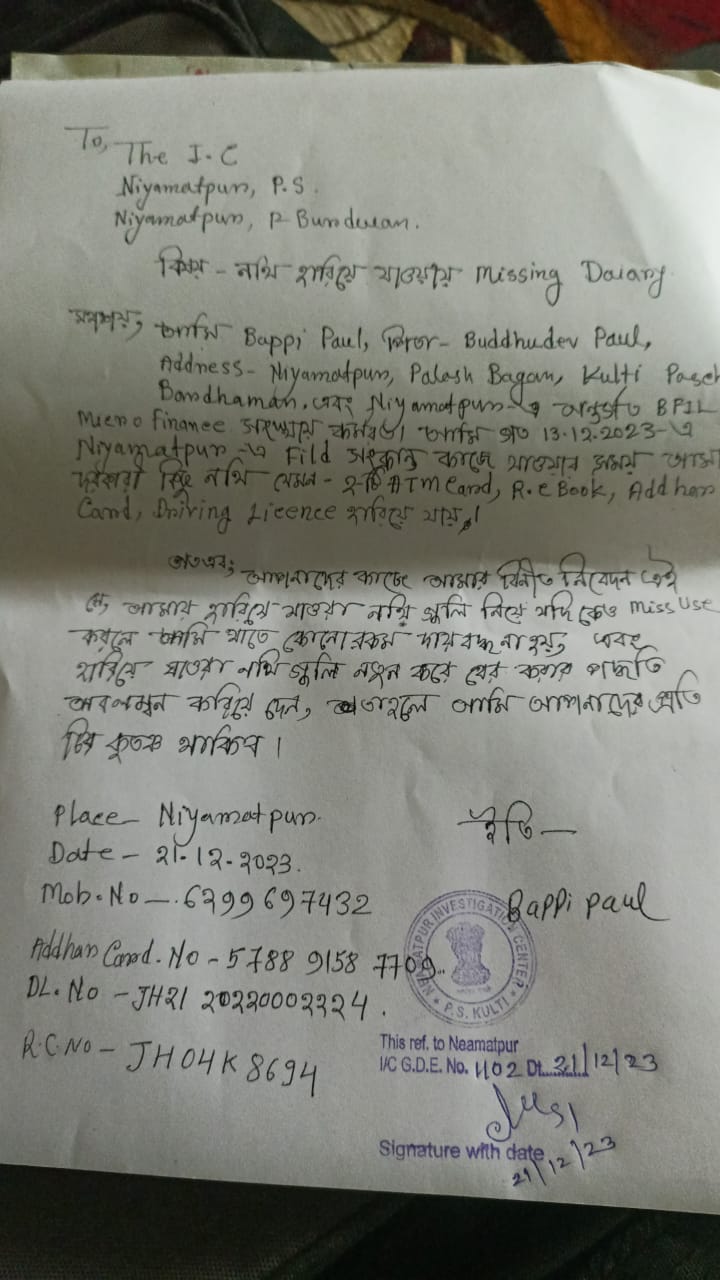 To,
The I.C
Niyamatpur, P.S.
Niyamatpur, P Burdwan.
বিষয় - নথি হারিয়ে যাওয়ায় Missing Daiary.
মহাশয়, আমি Bappi Paul, পিতা- Buddhudev Paul,
Address- Niyamatpur, Palash Bagan, Kulti Pasch
Bardhaman. এবং Niyamatpur-এ অন্তর্গত BFIL
Micro finance সংস্থায় কর্মরত। আমি গত 13.12.2023-এ
Niyamatpur-এ Fild সংক্রান্ত কাজে যাওয়ার সময় আমা
দরকারী কিছু নথি যেমন- ২টি ATM Card, R.C Book, Addhar
Card, Driving Licence হারিয়ে যায়।
অতএব, আপনাদের কাছে আমার বিনীত নিবেদন এই
যে, আমার হারিয়ে যাওয়া নথি গুলি নিয়ে যদি কেও Miss Use
করলে আমি যাতে কোনোরকম দায়বদ্ধ না হয়, এবং
হারিয়ে যাওয়া নথি গুলি নতুন করে বের করার পদ্ধতি
অবলম্বন করিয়ে দেন, তাহলে আমি আপনাদের প্রতি
চির কৃতজ্ঞ থাকিব।
Place- Niyamatpur.
ইতি—
Date - 21-12-2023.
Mob.No - 6299697432
Bappi paul
Addhar Card.No - 5788 9158 7709
DL.No - JH21 20220002224.
R.C.No - JH04K8694
NEAMATPUR INVESTIGATION CENTER
P.S. KULTI
This ref. to Neamatpur
I/C G.D.E. No. 1102 Dt. 21/12/23
Signature with date
21/12/23